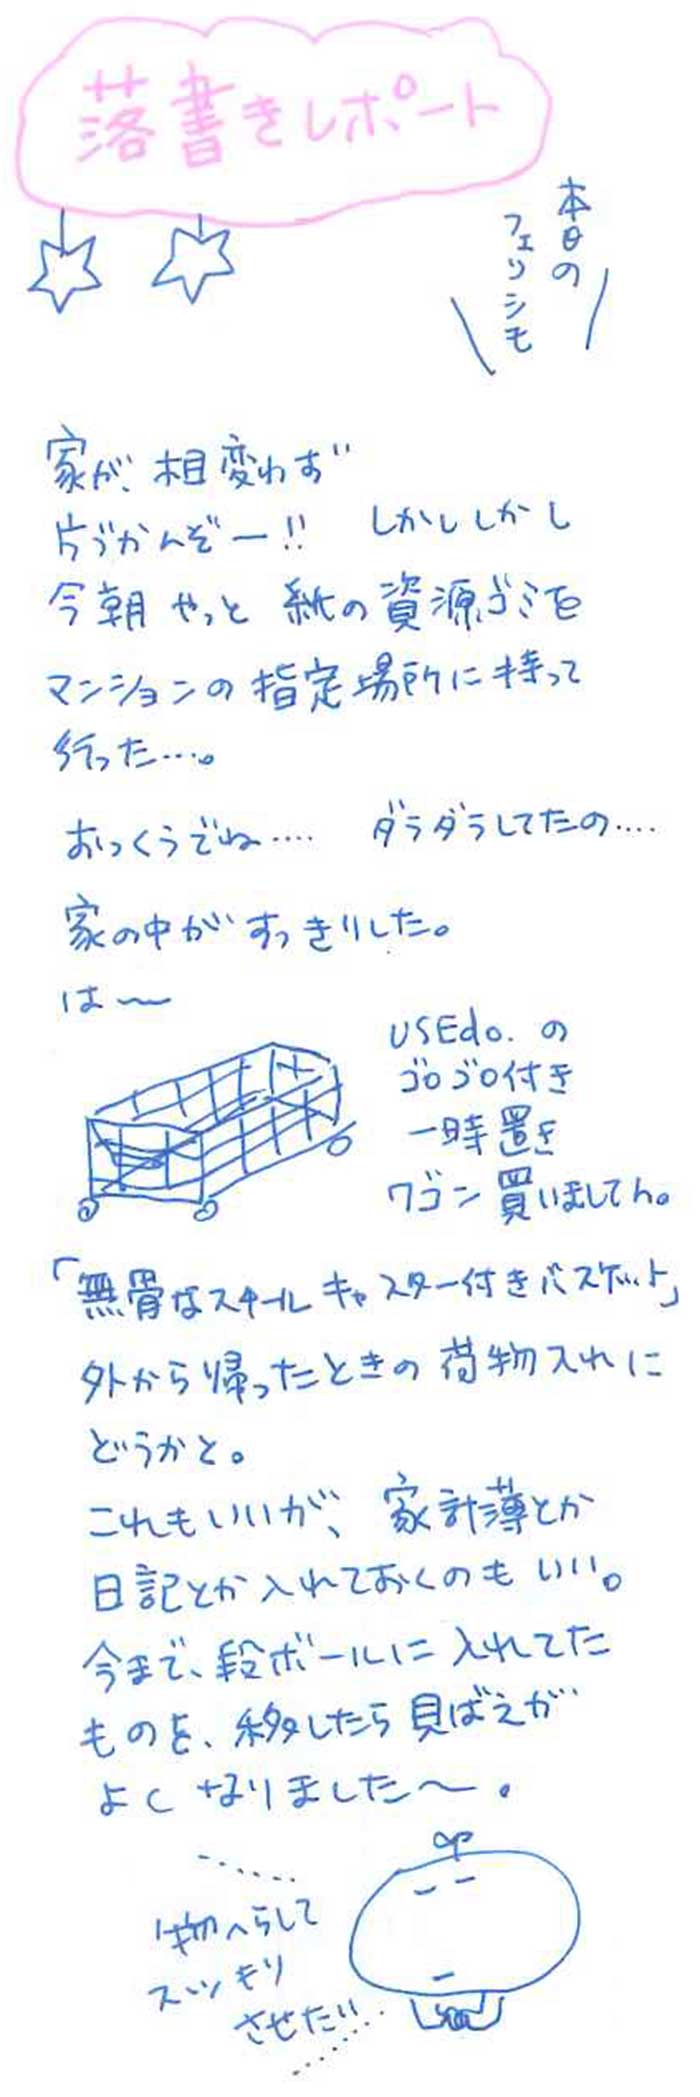 落書きレポート
本日の
フェリシモ
家が、相変わらず
片づかんぞー!! しかししかし
今朝やっと 紙の資源ゴミを
マンションの指定場所に持って
行った…。
おっくうでね…. ダラダラしてたの….
家の中がすっきりした。
は〜
USEdo. の
ゴロゴロ付き
一時置き
ワゴン買いましてん。
「無骨なスチールキャスター付きバスケット」
外から帰ったときの荷物入れに
どうかと。
これもいいが、家計薄とか
日記とか入れておくのもいい。
今まで、段ボールに入れてた
ものを、移したら見ばえが
よくなりました〜。
物へらして
スッキリ
させたい…